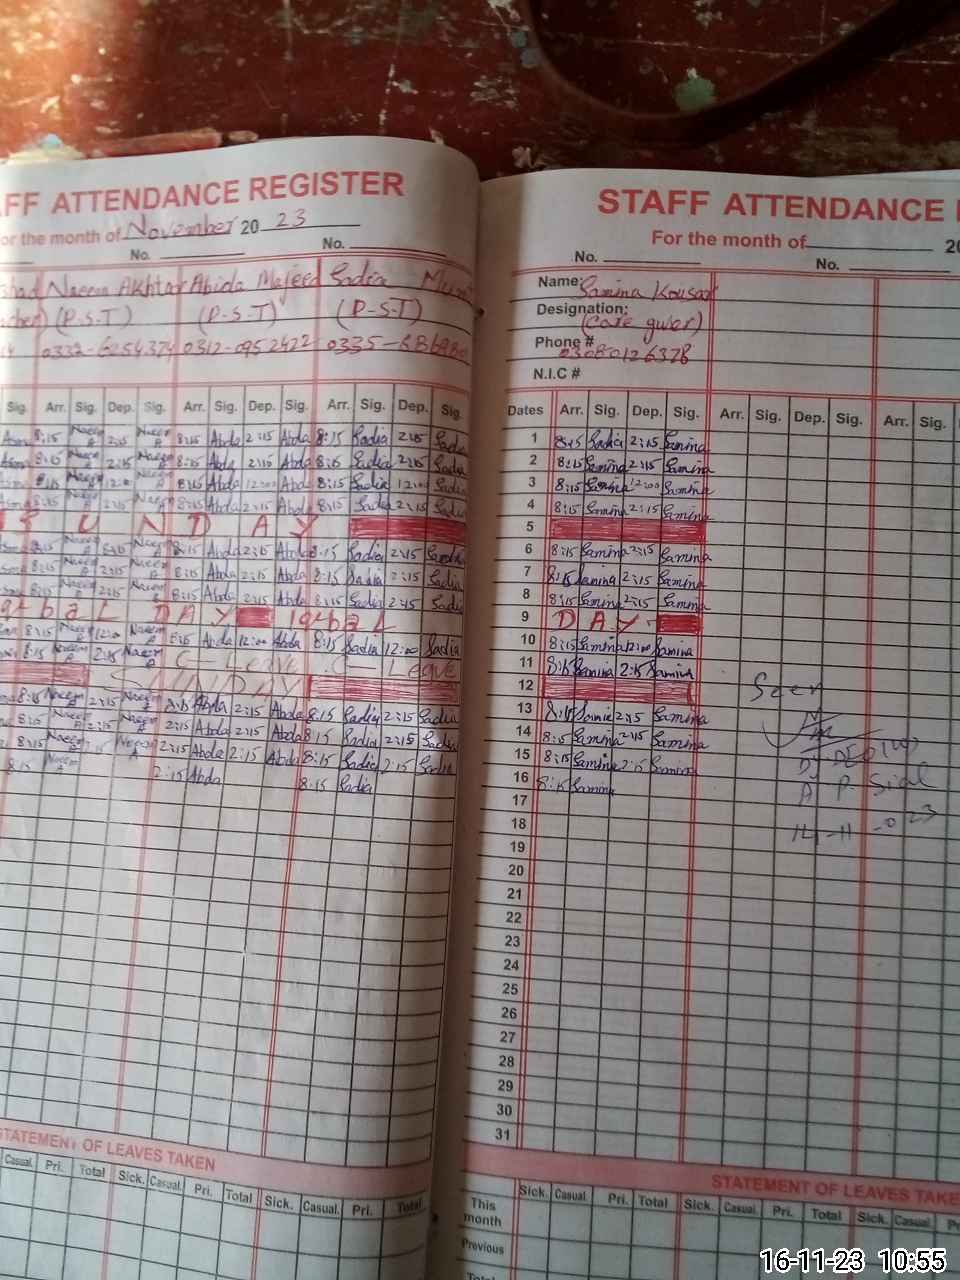 AFF ATTENDANCE REGISTER
or the month of November 20 23
No. No.
Naeem Akhtar Abida Majeed Sadia
(P-S-T) (P-S-T) (P-S-T)
0312-0952422
Sig. Arr. Sig. Dep. Sig. Arr. Sig. Dep. Sig. Arr. Sig. Dep. Sig.
8:15 Naeem A 2:15 Naeem 8:15 Abda 2:15 Abda 8:15 Sadia 2:15 Sadia
8:15 Naeem A 2:15 Naeem 8:15 Abda 2:15 Abda 8:15 Sadia 2:15 Sadia
8:15 Naeem A 12:00 Naeem 8:15 Abda 12:00 Abda 8:15 Sadia 12:00 Sadia
8:15 Naeem A 2:15 Naeem 8:15 Abda 2:15 Abda 8:15 Sadia 2:15 Sadia
U N D A Y
8:15 Naeem A 2:15 Naeem 8:15 Abda 2:15 Abda 8:15 Sadia 2:15
8:15 Naeem A 2:15 Naeem 8:15 Abda 2:15 Abda 8:15 Sadia 2:15 Sadia
8:15 Naeem A 2:15 Naeem 8:15 Abda 2:15 Abda 8:15 Sadia 2:15 Sadia
qbaL DAY iqbaL
8:15 Naeem 12:00 Naeem 8:15 Abda 12:00 Abda 8:15 Sadia 12:00 Sadia
8:15 Naeem A 2:15 Naeem C - Leave C - Leave
SUNDAY
8:15 Naeem A 2:15 Naeem 8:15 Abda 2:15 Abda 8:15 Sadia 2:15 Sadia
8:15 Naeem A 2:15 Naeem 2:15 Abda 2:15 Abda 8:15 Sadia 2:15 Sadia
8:15 Naeem A 2:15 Naeem 2:15 Abda 2:15 Abda 8:15 Sadia 2:15 Sadia
8:15 Naeem A 2:15 Abda 8:15 Sadia
STATEMENT OF LEAVES TAKEN
Casual. Pri. Total Sick. Casual. Pri. Total Sick. Casual. Pri. Total
STAFF ATTENDANCE
For the month of 20
No. No.
Name: Samina Kousar
Designation: (Care giver)
Phone # 03080126378
N.I.C #
Dates Arr. Sig. Dep. Sig. Arr. Sig. Dep. Sig. Arr. Sig.
1 8:15 Sadia 2:15 Samina
2 8:15 Samina 2:15 Samina
3 8:15 Samina 12:00 Samina
4 8:15 Samina 2:15 Samina
5
6 8:15 Samina 2:15 Samina
7 8:15 Samina 2:15 Samina
8 8:15 Samina 2:15 Samina
9 D A Y
10 8:15 Samina 12:00 Samina
11 8:15 Samina 2:15 Samina
12
13 8:15 2:15 Samina
14 8:15 Samina 2:15 Samina
15 8:15 Samina 2:15 Samina
16 8:15 Samina
17
18
19
20
21
22
23
24
25
26
27
28
29
30
31
Seen
Dy DEO (W)
A P. Sial
STATEMENT OF LEAVES TAKE
Sick. Casual. Pri. Total Sick. Casual. Pri. Total Sick. Casual. Pri.
This month
Previous
Total
16-11-23 10:55